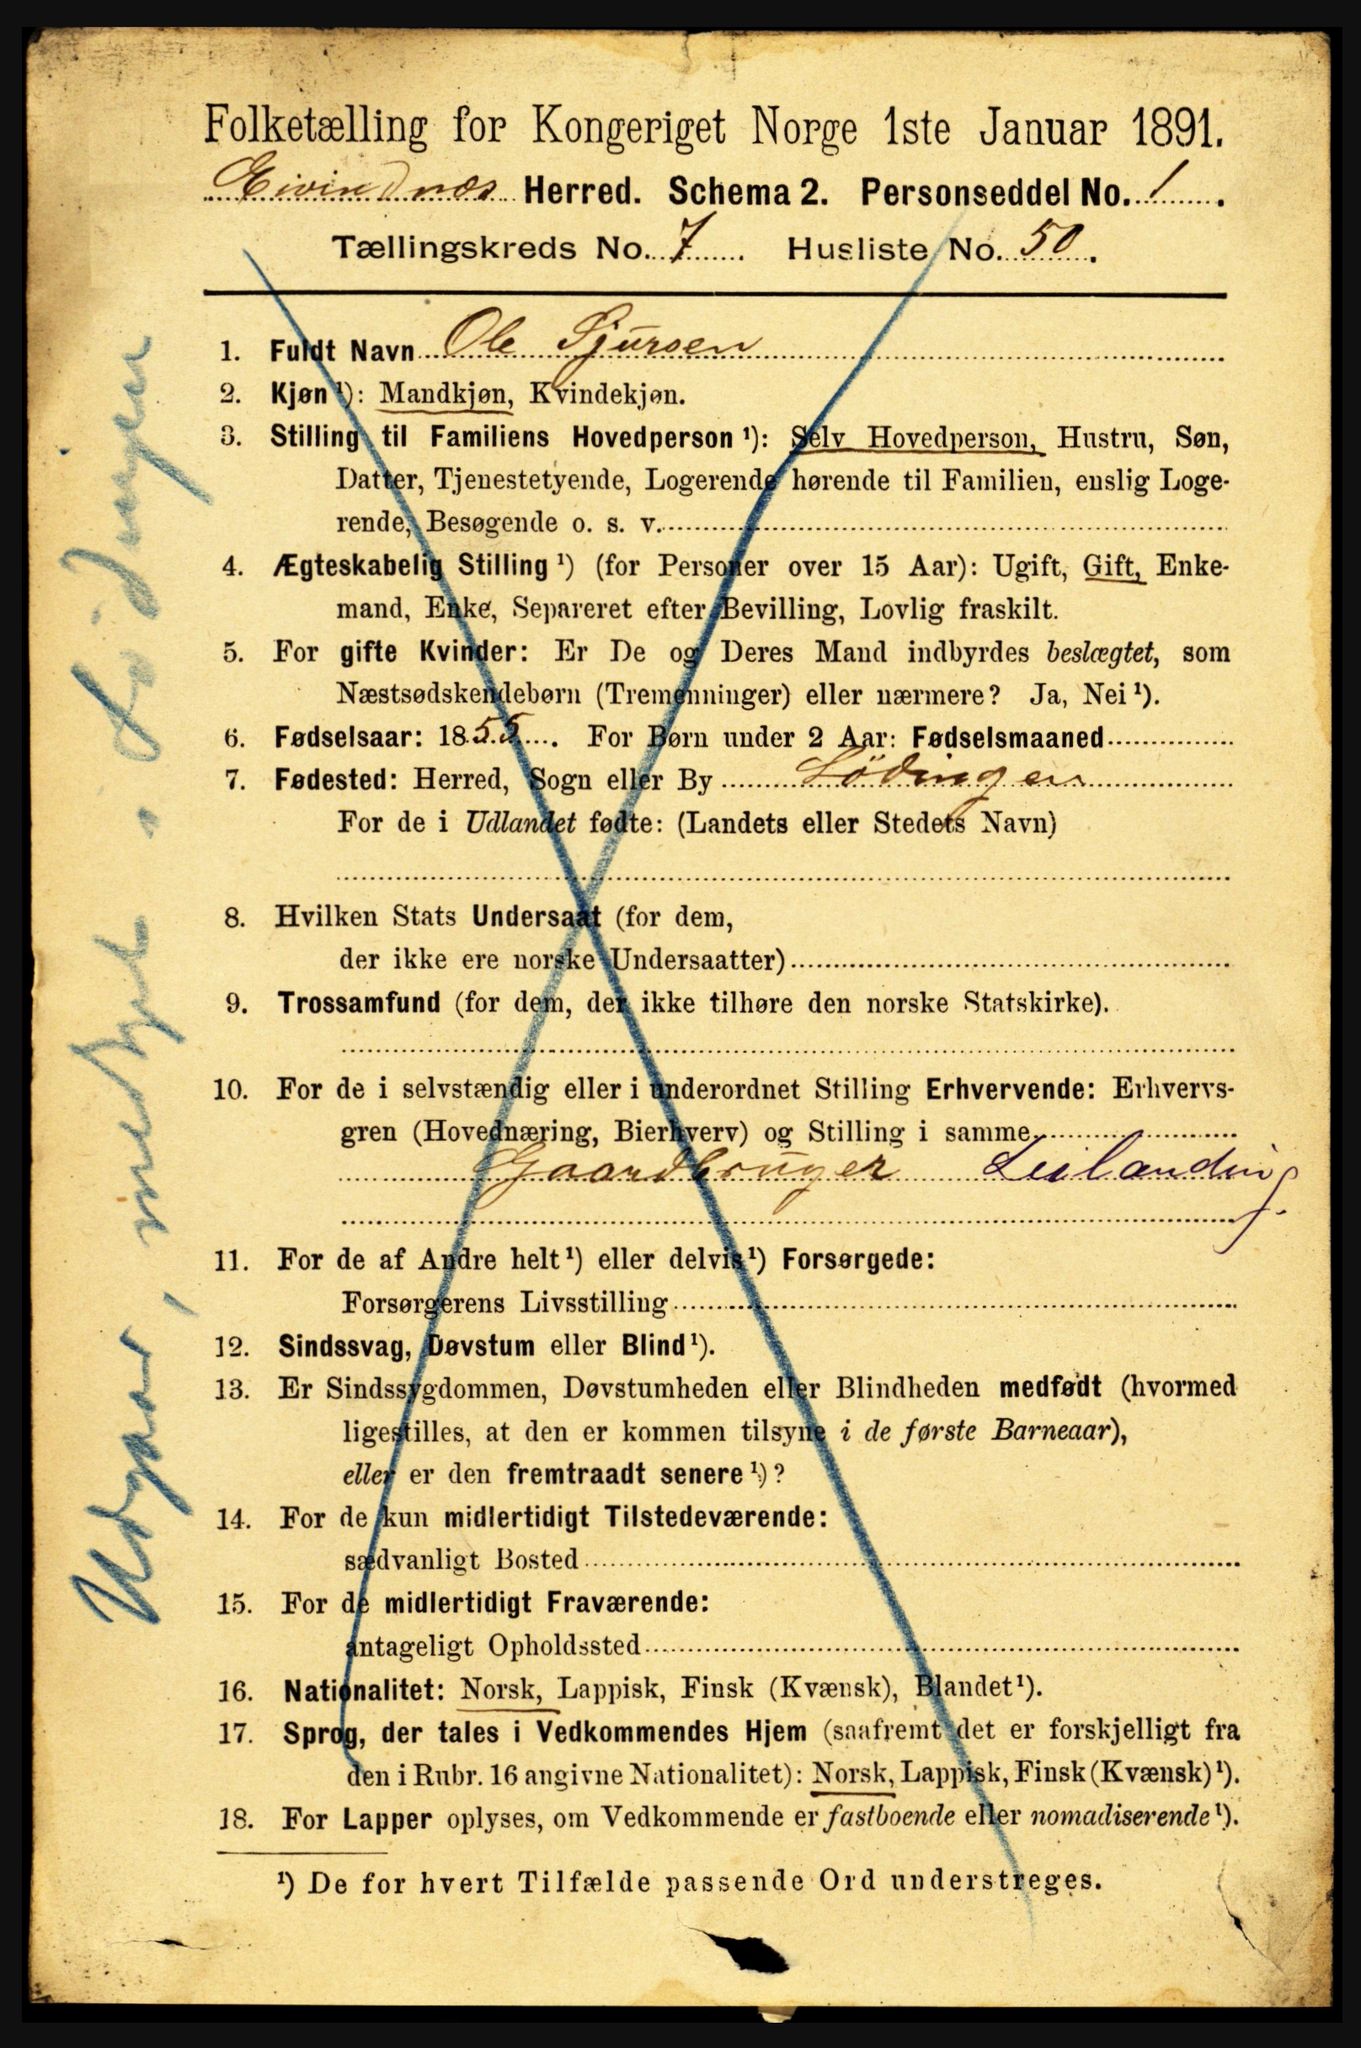 Folketælling for Kongeriget Norge 1ste Januar 1891.
Eivindnæs Herred. Schema 2. Personseddel No. 1.
Tællingskreds No. 7 Husliste No. 50.
1. Fuldt Navn Ole Sjursen
2. Kjøn ¹): Mandkjøn, Kvindekjøn.
3. Stilling til Familiens Hovedperson ¹): Selv Hovedperson, Hustru, Søn,
Datter, Tjenestetyende, Logerende hørende til Familien, enslig Loge-
rende, Besøgende o. s. v.
4. Ægteskabelig Stilling ¹) (for Personer over 15 Aar): Ugift, Gift, Enke-
mand, Enke, Separeret efter Bevilling, Lovlig fraskilt.
5. For gifte Kvinder: Er De og Deres Mand indbyrdes beslægtet, som
Næstsødskendebørn (Tremenninger) eller nærmere? Ja, Nei ¹).
6. Fødselsaar: 1855. For Børn under 2 Aar: Fødselsmaaned
7. Fødested: Herred, Sogn eller By Lödingen
For de i Udlandet fødte: (Landets eller Stedets Navn)
8. Hvilken Stats Undersaat (for dem,
der ikke ere norske Undersaatter)
9. Trossamfund (for dem, der ikke tilhøre den norske Statskirke).
10. For de i selvstændig eller i underordnet Stilling Erhvervende: Erhvervs-
gren (Hovednæring, Bierhverv) og Stilling i samme
Gaardbruger Leilænding.
11. For de af Andre helt ¹) eller delvis ¹) Forsørgede:
Forsørgerens Livsstilling
12. Sindssvag, Døvstum eller Blind ¹).
13. Er Sindssygdommen, Døvstumheden eller Blindheden medfødt (hvormed
ligestilles, at den er kommen tilsyne i de første Barneaar),
eller er den fremtraadt senere ¹)?
14. For de kun midlertidigt Tilstedeværende:
sædvanligt Bosted
15. For de midlertidigt Fraværende:
antageligt Opholdssted
16. Nationalitet: Norsk, Lappisk, Finsk (Kvænsk), Blandet ¹).
17. Sprog, der tales i Vedkommendes Hjem (saafremt det er forskjelligt fra
den i Rubr. 16 angivne Nationalitet): Norsk, Lappisk, Finsk (Kvænsk) ¹).
18. For Lapper oplyses, om Vedkommende er fastboende eller nomadiserende ¹).
¹) De for hvert Tilfælde passende Ord understreges.
Udgaar, medtat i Lödingen